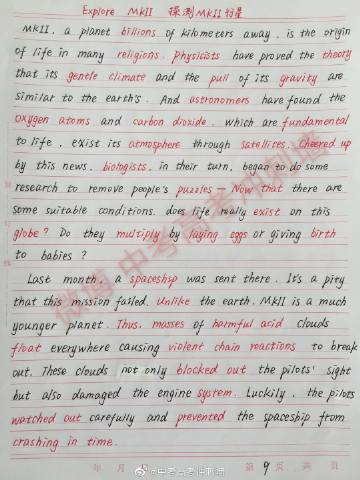 Explore MKII 探测MKII行星
MKII, a planet billions of kilometers away, is the origin
of life in many religions. Physicists have proved the theory
that its gentle climate and the pull of its gravity are
similar to the earth's. And astronomers have found the
oxygen atoms and carbon dioxide, which are fundamental
to life, exist its atmosphere through satellites. Cheered up
by this news, biologists, in their turn, began to do some
research to remove people's puzzles: Now that there are
some suitable conditions, does life really exist on this
globe? Do they multiply by laying eggs or giving birth
to babies?
Last month, a spaceship was sent there. It's a pity
that this mission failed. Unlike the earth, MKII is a much
younger planet. Thus, masses of harmful acid clouds
float everywhere causing violent chain reactions to break
out. These clouds not only blocked out the pilots' sight
but also damaged the engine system. Luckily, the pilots
watched out carefully and prevented the spaceship from
crashing in time.
年 月 日 第 9 页 共 页
微博 中考高考冲刺墙
@中考高考冲刺墙